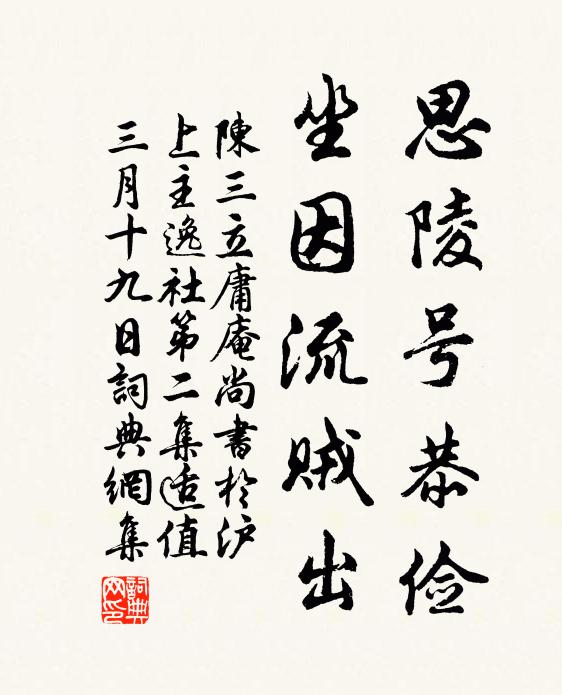 思陵号恭俭
坐因流贼出
陳三立庸庵尚書於沪
上主逸社第二集适值
三月十九日詞典網集
詞典网印